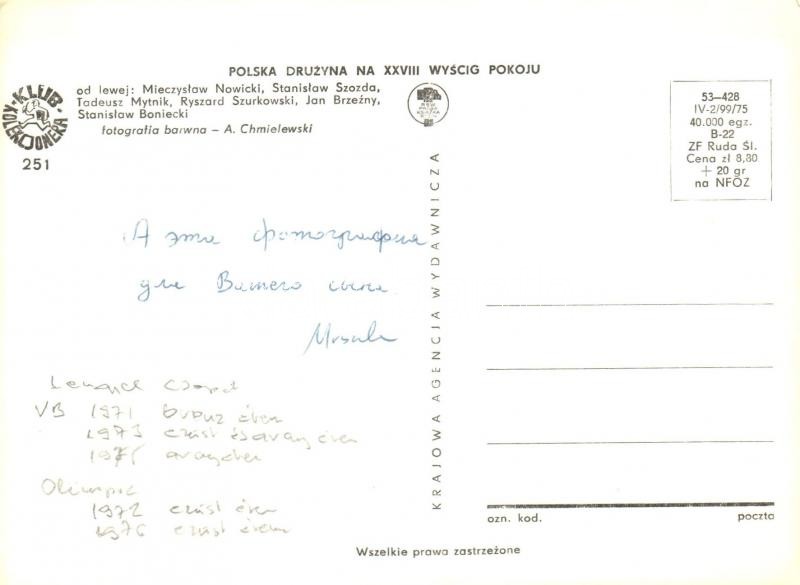 POLSKA DRUŻYNA NA XXVIII WYŚCIG POKOJU
od lewej: Mieczysław Nowicki, Stanisław Szozda,
Tadeusz Mytnik, Ryszard Szurkowski, Jan Brzeźny,
Stanisław Boniecki
fotografia barwna – A. Chmielewski
KLUB KOLEKCJONERA
251
53–428
IV-2/99/75
40.000 egz.
B-22
ZF Ruda Śl.
Cena zł 8,80
+ 20 gr
na NFOZ
А эта фотография
для Вашего сына
Ursula
KRAJOWA AGENCJA WYDAWNICZA
Lengyel csapat
VB 1971 bronz érem
1973 ezüst és arany érem
1975 aranyérem
Olimpia
1972 ezüst érem
1976 ezüst érem
ozn. kod.
poczta
Wszelkie prawa zastrzeżone